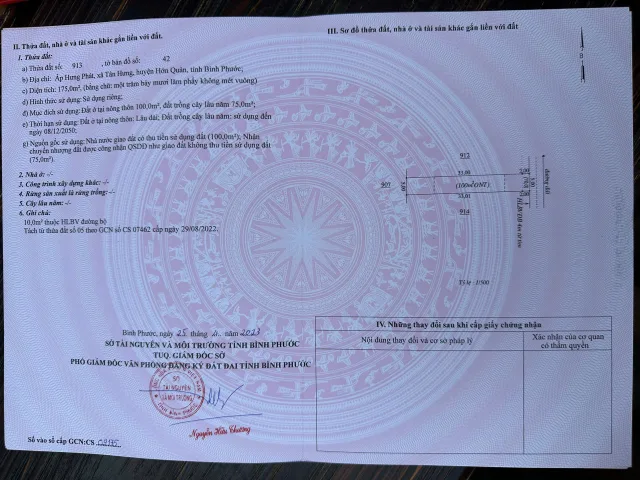 II. Thửa đất, nhà ở và tài sản khác gắn liền với đất.
1. Thửa đất:
a) Thửa đất số: 913 , tờ bản đồ số: 42
b) Địa chỉ: Ấp Hưng Phát, xã Tân Hưng, huyện Hớn Quản, tỉnh Bình Phước;
c) Diện tích: 175,0m², (bằng chữ: một trăm bảy mươi lăm phẩy không mét vuông)
d) Hình thức sử dụng: Sử dụng riêng;
đ) Mục đích sử dụng: Đất ở tại nông thôn 100,0m², đất trồng cây lâu năm 75,0m²;
e) Thời hạn sử dụng: Đất ở tại nông thôn: Lâu dài; Đất trồng cây lâu năm: sử dụng đến
ngày 08/12/2050;
g) Nguồn gốc sử dụng: Nhà nước giao đất có thu tiền sử dụng đất (100,0m²); Nhận
chuyển nhượng đất được công nhận QSDĐ như giao đất không thu tiền sử dụng đất
(75,0m²).
2. Nhà ở: -/-
3. Công trình xây dựng khác: -/-
4. Rừng sản xuất là rừng trồng: -/-
5. Cây lâu năm: -/-
6. Ghi chú:
10,0m² thuộc HLBV đường bộ
Tách từ thửa đất số 05 theo GCN số CS 07462 cấp ngày 29/08/2022.
Bình Phước, ngày 25 tháng năm 2023
SỞ TÀI NGUYÊN VÀ MÔI TRƯỜNG TỈNH BÌNH PHƯỚC
TUQ. GIÁM ĐỐC SỞ
PHÓ GIÁM ĐỐC VĂN PHÒNG ĐĂNG KÝ ĐẤT ĐAI TỈNH BÌNH PHƯỚC
SỞ
TÀI NGUYÊN
VÀ MÔI TRƯỜNG
TỈNH BÌNH PHƯỚC
Nguyễn Hữu Chương
Số vào sổ cấp GCN:CS
III. Sơ đồ thửa đất, nhà ở và tài sản khác gắn liền với đất
B
912
35,00
907
5,00
(100m²ONT)
2,00
5,00
đường đất
35,00
914
Tỷ lệ - 1/500
IV. Những thay đổi sau khi cấp giấy chứng nhận
Nội dung thay đổi và cơ sở pháp lý
Xác nhận của cơ quan
có thẩm quyền